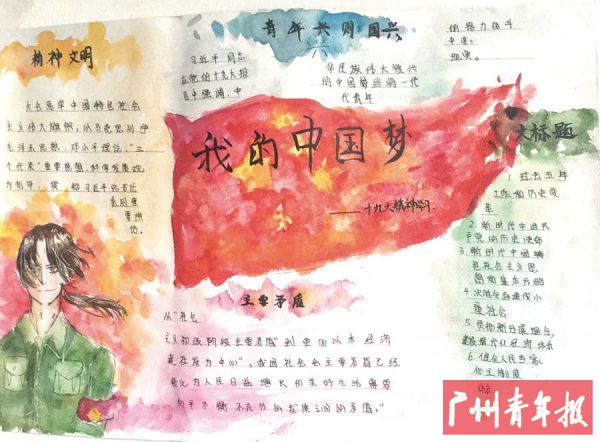 精神文明
大会高举中国特色社会
主义伟大旗帜，以马克思列宁
毛泽东思想、邓小平理论、"三
个代表"重要思想、科学发展观
为指导，
青年兴则国兴
习近平同志
在党的十九大报
告中强调，中
华民族伟大复兴
的中国梦终将一代
代青年
的接力奋斗
中变
现实。
我的中国梦
——十九大精神学习
大标题
1 过去五年
工作和历史变
革
2 新时代中国共
产党的历史使命
3 新时代中国特
色社会主义思
想和基本方略
4 决胜全面建成小
康社会
5 贯彻新发展理念，
建设现代化经济体系
6 健全人民当家
作主制度
体系
主要矛盾
从"社会
主义初级阶段主要矛盾
经济
建设为中心"，我国社会主要矛盾已经
转化为人民日益增长的美好生活需要
和不平衡不充分的发展之间的矛盾。"
广州青年报